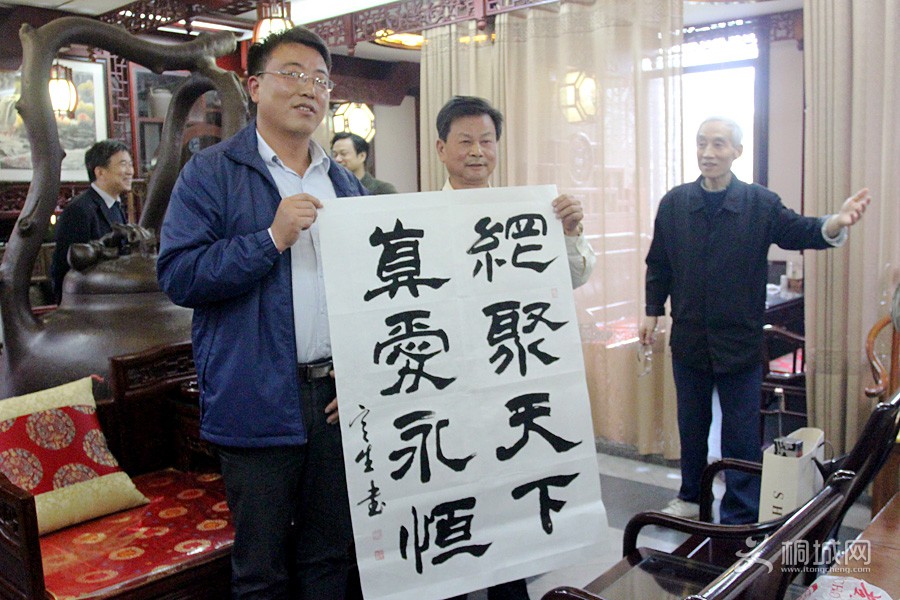 網聚天下
真愛永恒
定生書
SH
桐城网
www.itongcheng.com